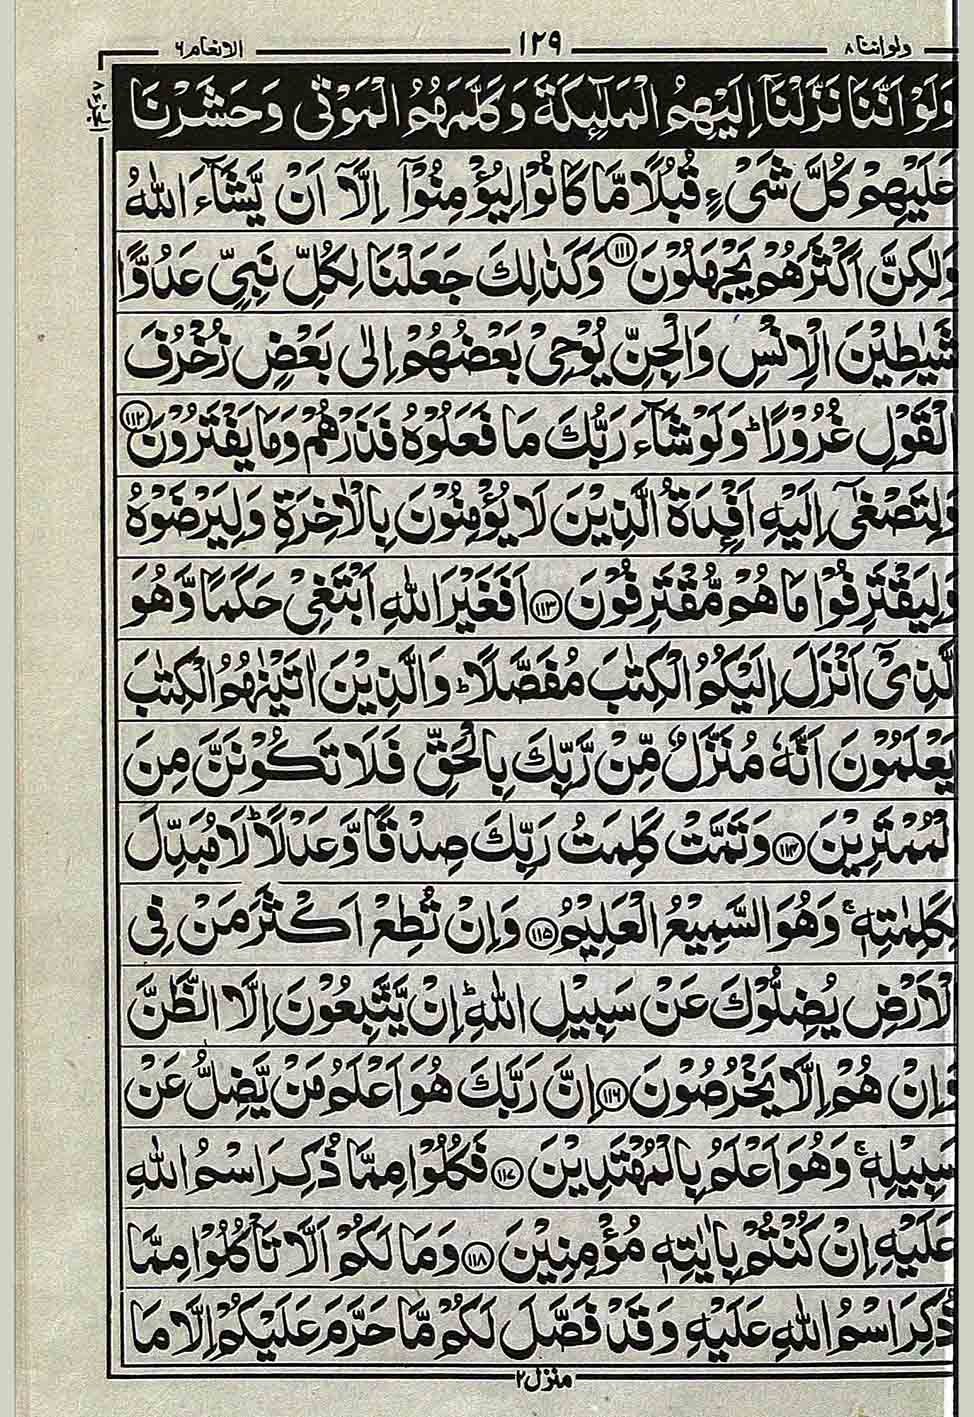 ولواننا ۸ ۱۲۹ الانعام ۶
وَلَوْ اَنَّنَا نَزَّلْنَاۤ اِلَيْهِمُ الْمَلٰٓئِكَةَ وَكَلَّمَهُمُ الْمَوْتٰى وَحَشَرْنَا
عَلَيْهِمْ كُلَّ شَىْءٍ قُبُلًا مَّا كَانُوْا لِيُؤْمِنُوْۤا اِلَّاۤ اَنْ يَّشَآءَ اللّٰهُ
وَلٰكِنَّ اَكْثَرَهُمْ يَجْهَلُوْنَ ۱۱۱ وَكَذٰلِكَ جَعَلْنَا لِكُلِّ نَبِىٍّ عَدُوًّا
شَيٰطِيْنَ الْاِنْسِ وَالْجِنِّ يُوْحِىْ بَعْضُهُمْ اِلٰى بَعْضٍ زُخْرُفَ
الْقَوْلِ غُرُوْرًا ؕ وَلَوْ شَآءَ رَبُّكَ مَا فَعَلُوْهُ فَذَرْهُمْ وَمَا يَفْتَرُوْنَ ۱۱۲
وَلِتَصْغٰٓى اِلَيْهِ اَفْـِٕدَةُ الَّذِيْنَ لَا يُؤْمِنُوْنَ بِالْاٰخِرَةِ وَلِيَرْضَوْهُ
وَلِيَقْتَرِفُوْا مَا هُمْ مُّقْتَرِفُوْنَ ۱۱۳ اَفَغَيْرَ اللّٰهِ اَبْتَغِىْ حَكَمًا وَّهُوَ
الَّذِىْۤ اَنْزَلَ اِلَيْكُمُ الْكِتٰبَ مُفَصَّلًا ؕ وَالَّذِيْنَ اٰتَيْنٰهُمُ الْكِتٰبَ
يَعْلَمُوْنَ اَنَّهٗ مُنَزَّلٌ مِّنْ رَّبِّكَ بِالْحَقِّ فَلَا تَكُوْنَنَّ مِنَ
الْمُمْتَرِيْنَ ۱۱۴ وَتَمَّتْ كَلِمَتُ رَبِّكَ صِدْقًا وَّعَدْلًا ؕ لَا مُبَدِّلَ
لِكَلِمٰتِهٖ ۚ وَهُوَ السَّمِيْعُ الْعَلِيْمُ ۱۱۵ وَاِنْ تُطِعْ اَكْثَرَ مَنْ فِى
الْاَرْضِ يُضِلُّوْكَ عَنْ سَبِيْلِ اللّٰهِ ؕ اِنْ يَّتَّبِعُوْنَ اِلَّا الظَّنَّ
وَاِنْ هُمْ اِلَّا يَخْرُصُوْنَ ۱۱۶ اِنَّ رَبَّكَ هُوَ اَعْلَمُ مَنْ يَّضِلُّ عَنْ
سَبِيْلِهٖ ۚ وَهُوَ اَعْلَمُ بِالْمُهْتَدِيْنَ ۱۱۷ فَكُلُوْا مِمَّا ذُكِرَ اسْمُ اللّٰهِ
عَلَيْهِ اِنْ كُنْتُمْ بِاٰيٰتِهٖ مُؤْمِنِيْنَ ۱۱۸ وَمَا لَكُمْ اَلَّا تَاْكُلُوْا مِمَّا
ذُكِرَ اسْمُ اللّٰهِ عَلَيْهِ وَقَدْ فَصَّلَ لَكُمْ مَّا حَرَّمَ عَلَيْكُمْ اِلَّا مَا
منزل ۲